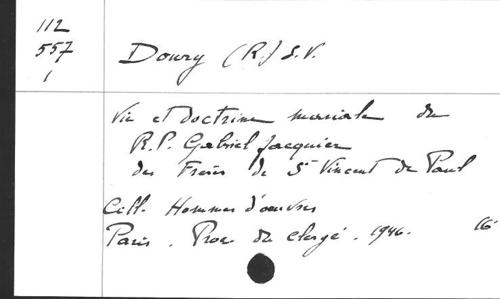 112
557
1
Doury (R.) S.V.
Vie et doctrine mariale du
R.P. Gabriel Jacquier
des Frères de St Vincent de Paul
Coll. Hommes d'œuvres
Paris. Proc. du clergé. 1946. 16°